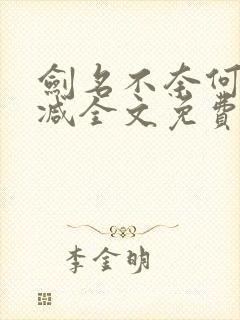 劍名不奈何
減全文免費
李金明